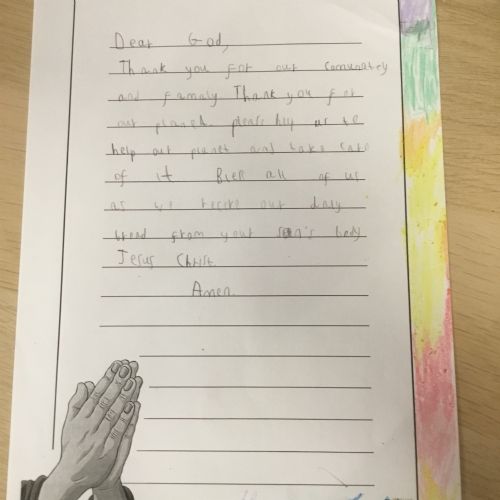 Dear God,
Thank you for our comunatey
and family Thank you for
our planet. please help us to
help our planet and take care
of it Bless all of us
as we recive our daly
bread from your son's body
Jesus Christ.
Amen.